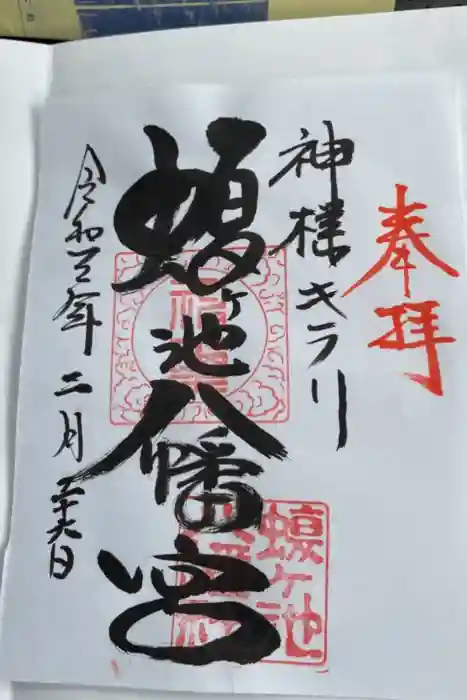 奉拝
神様キラリ
蝮ヶ池八幡宮
令和三年二月二十六日
蝮ヶ池